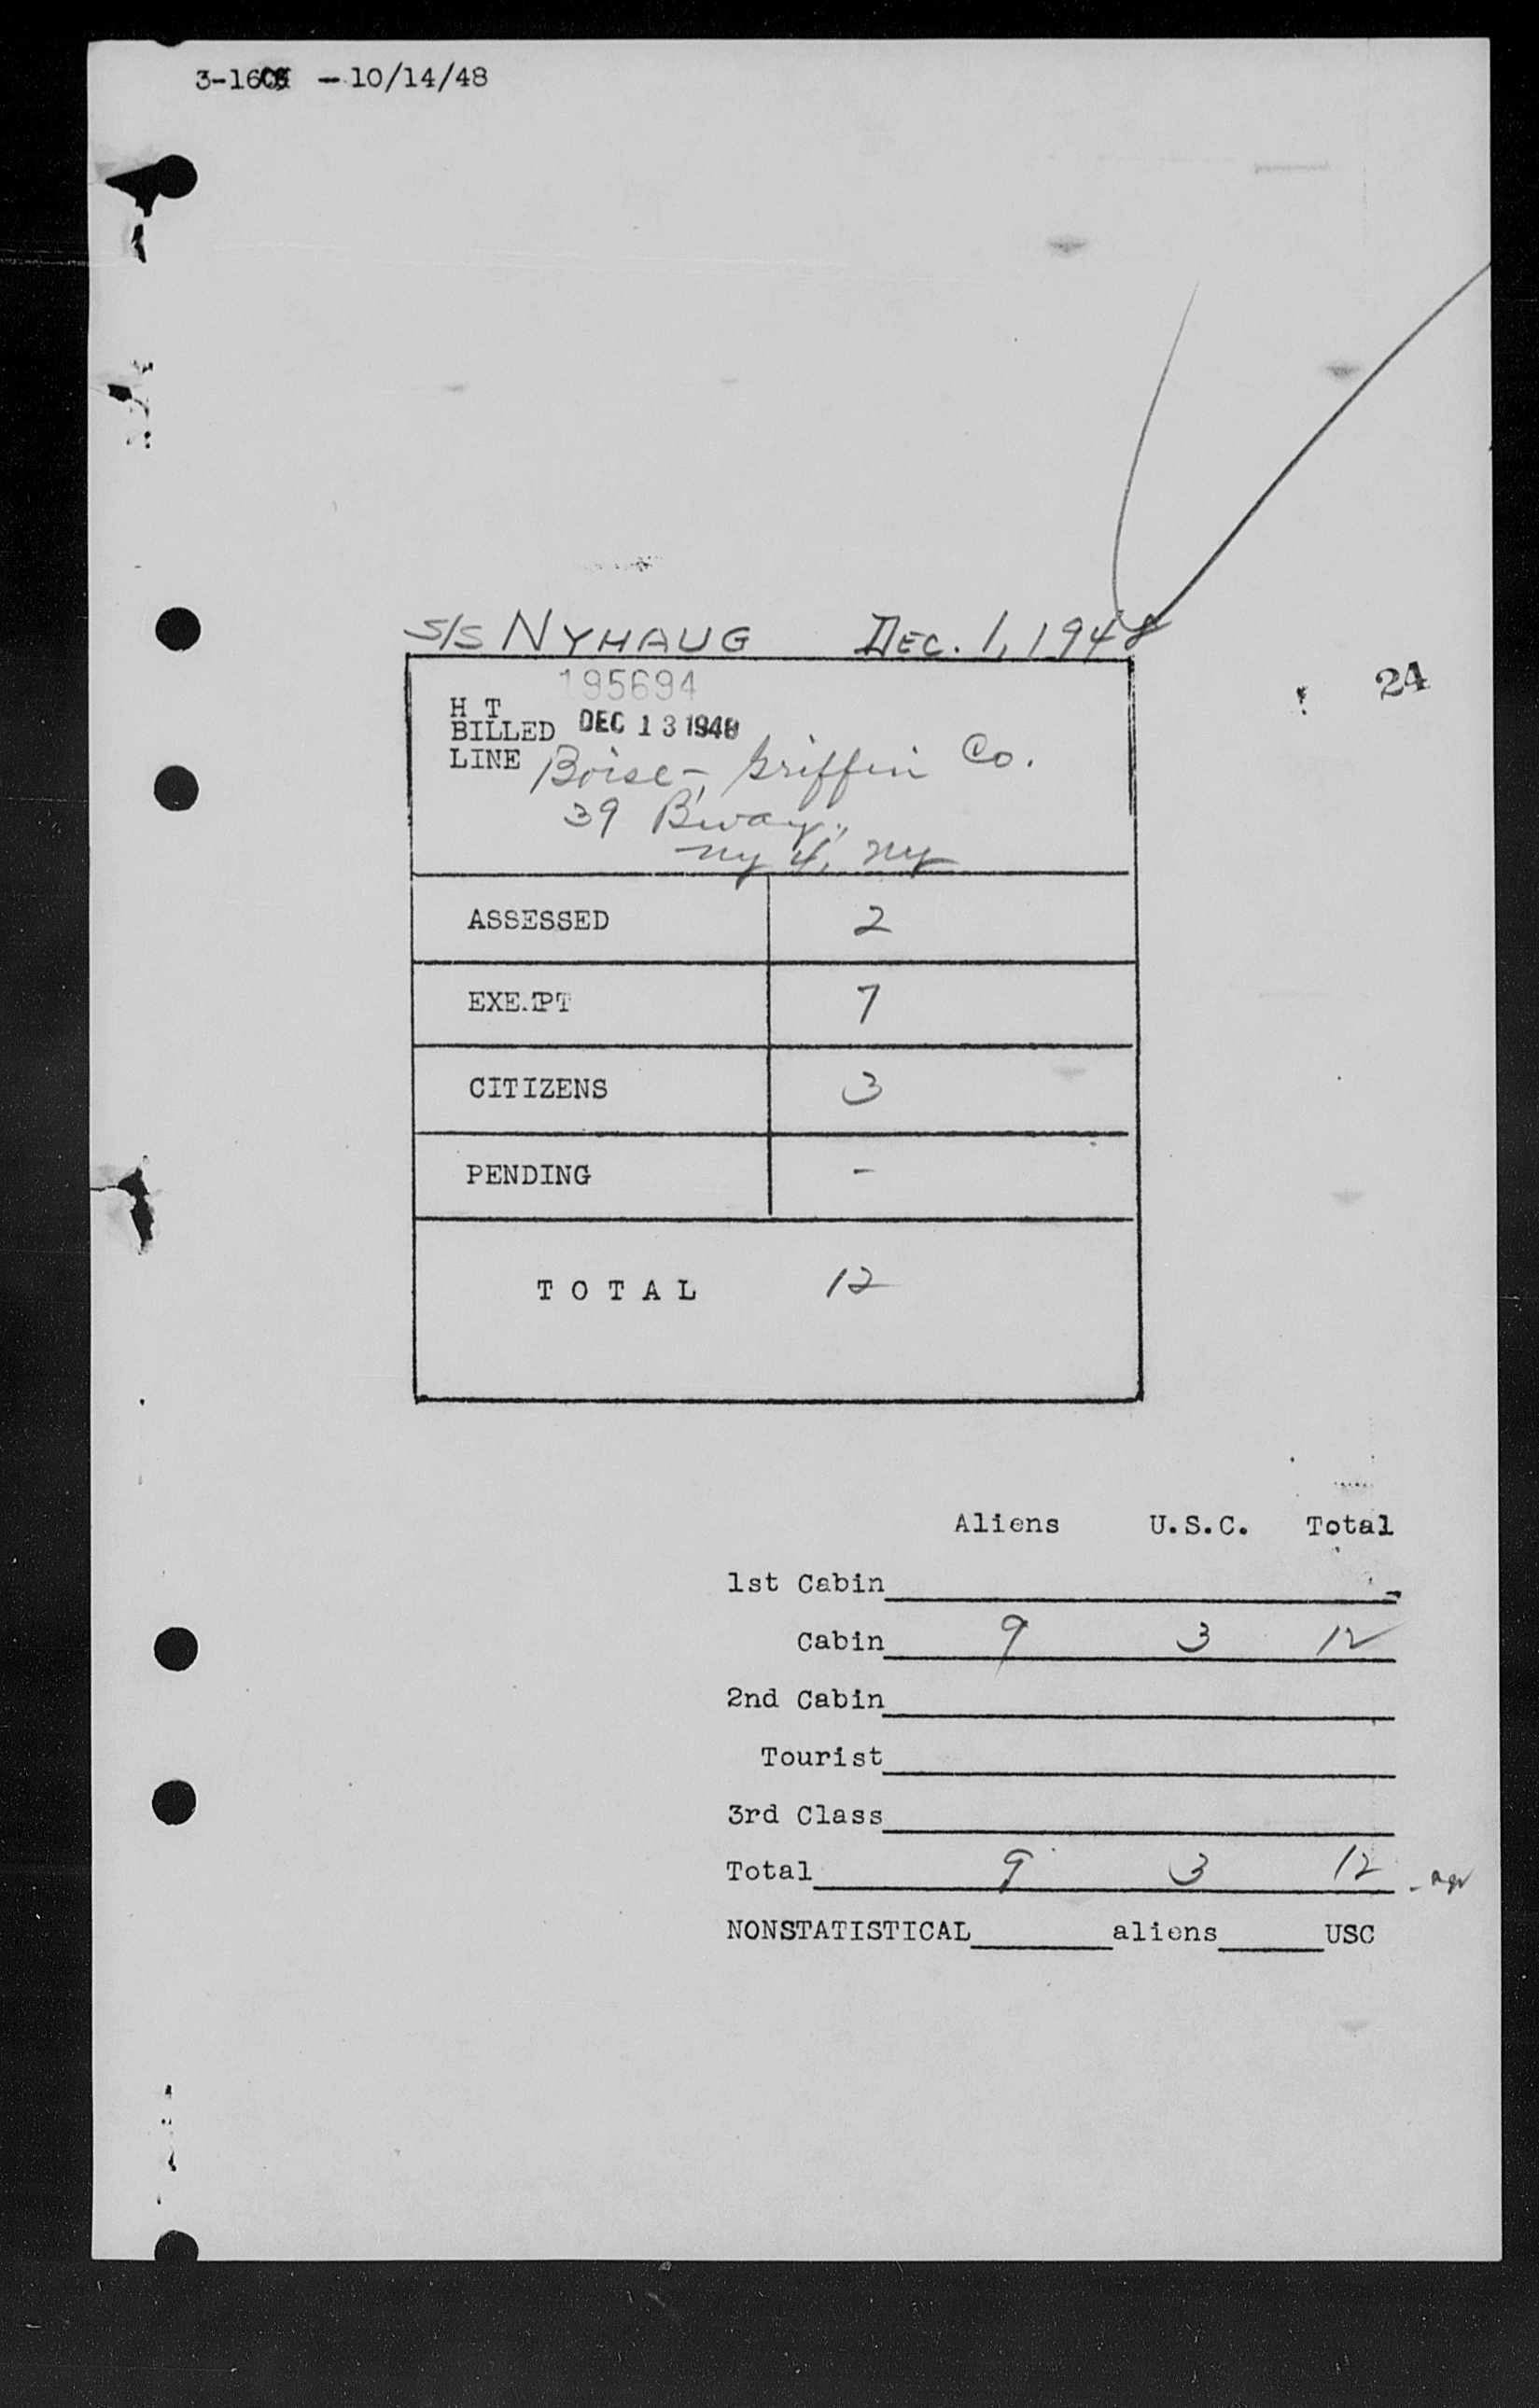 - 10/14/48
S/S NYHAUG DEC. 1, 1948
24
195694
H T
BILLED DEC 13 1948
LINE Boise-Griffin Co.
39 B'way,
NY 4, NY
ASSESSED 2
EXEMPT 7
CITIZENS 3
PENDING -
TOTAL 12
Aliens U.S.C. Total
1st Cabin
Cabin 9 3 12
2nd Cabin
Tourist
3rd Class
Total 9 3 12
NONSTATISTICAL aliens USC